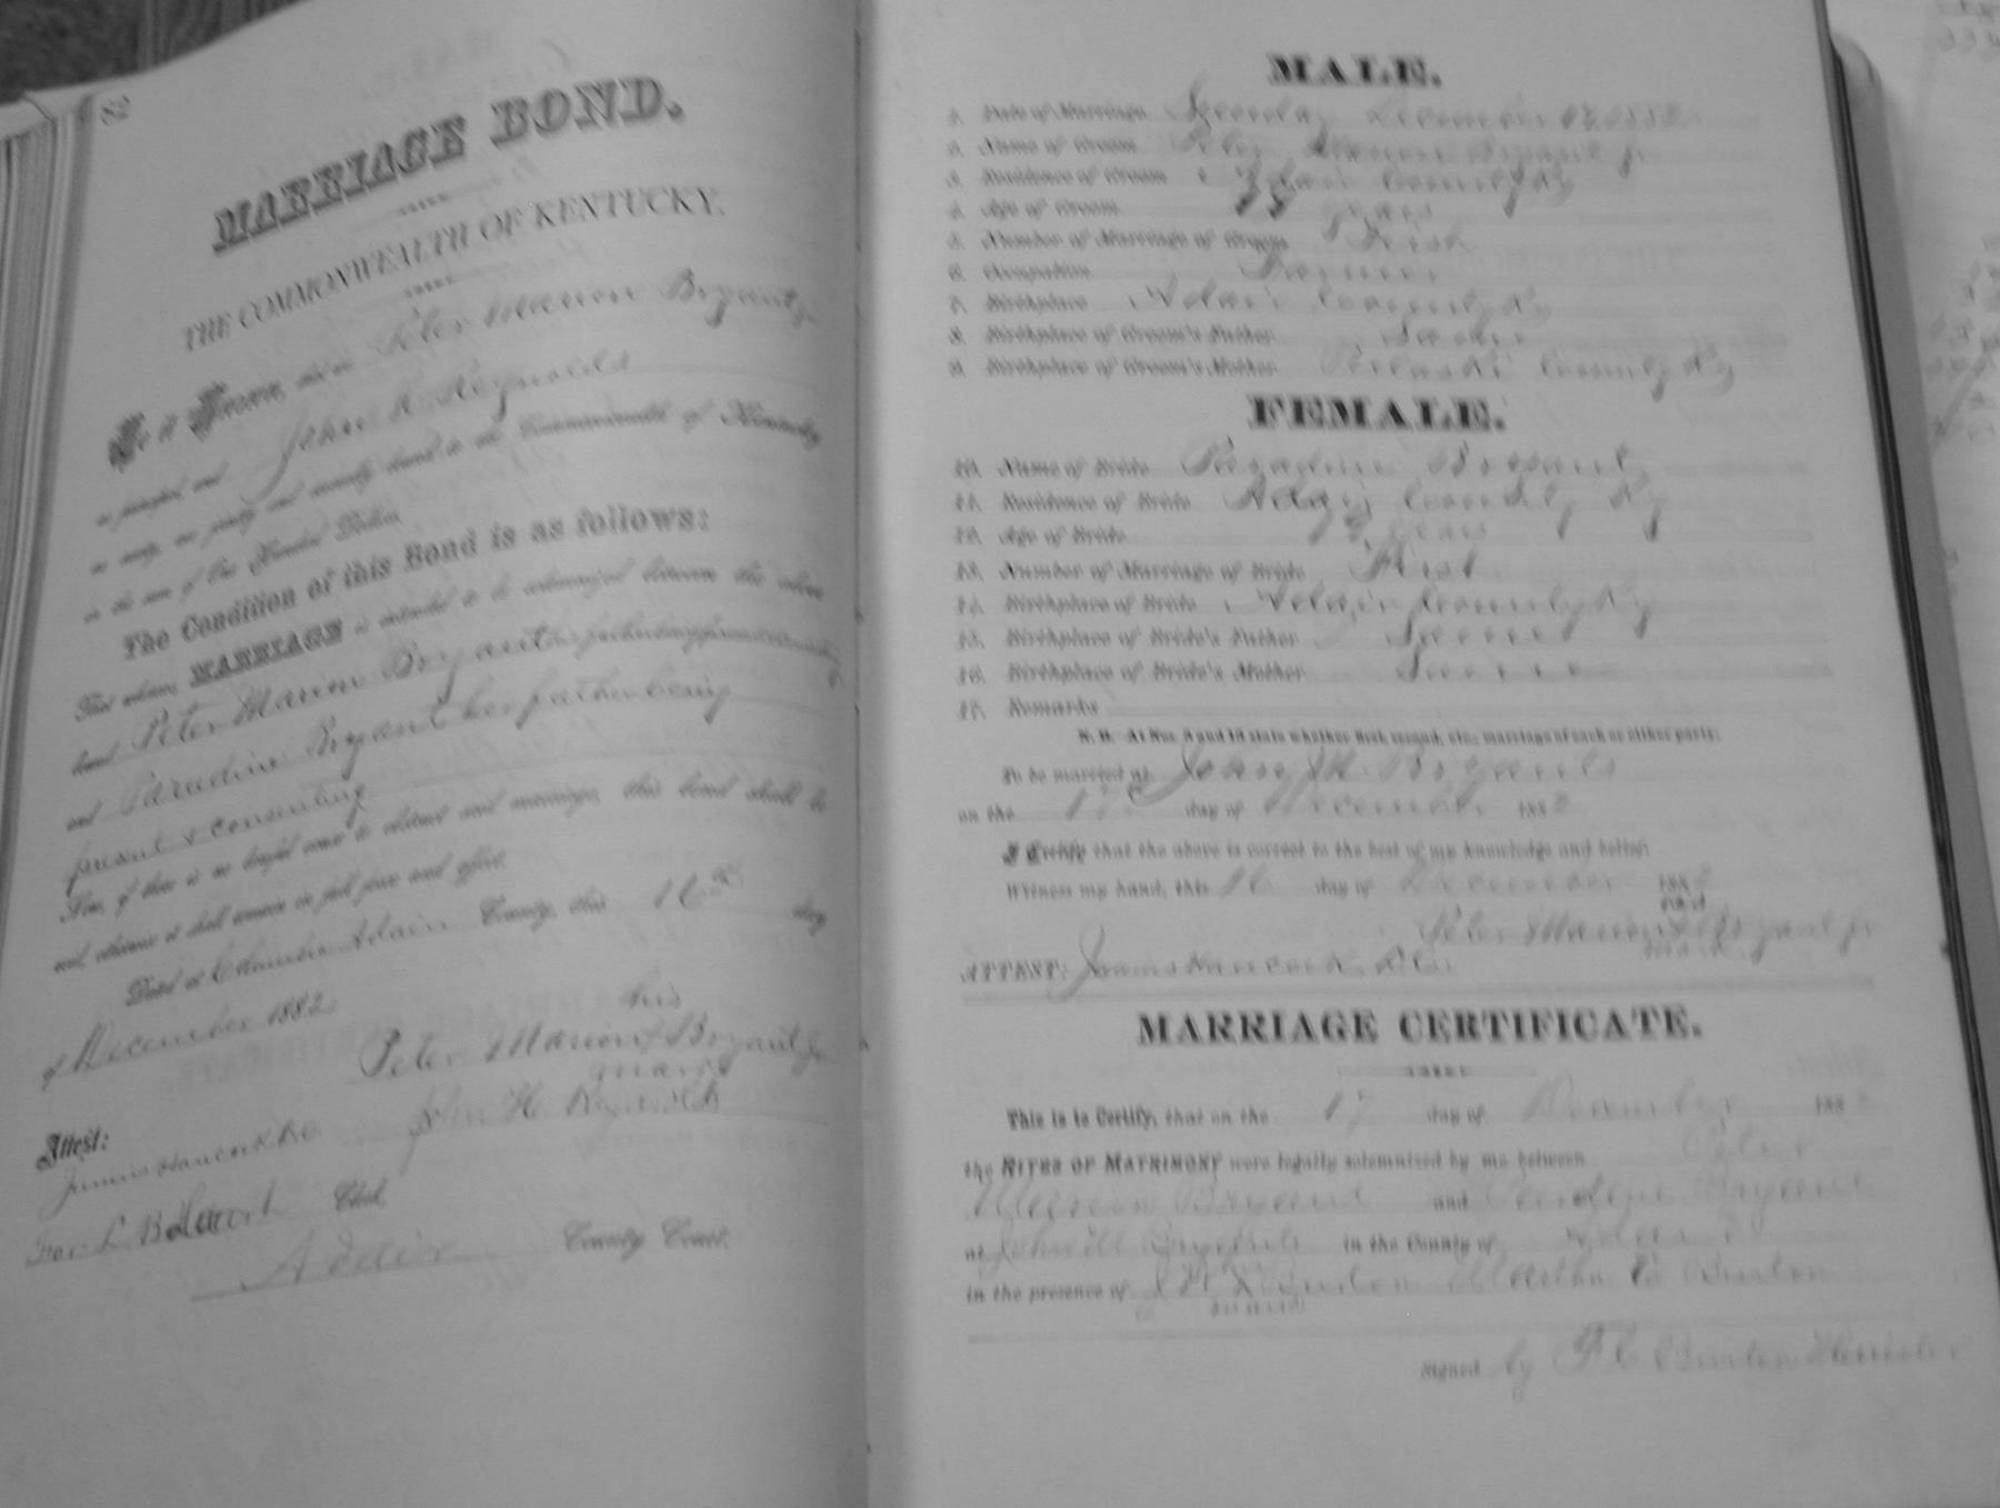 82
MARRIAGE BOND.
THE COMMONWEALTH OF KENTUCKY.
Be it Known, that we Peter Marion Bryant Jr
as principal, and John H Reynolds
as surety, are jointly and severally bound to the Commonwealth of Kentucky
in the sum of One Hundred Dollars.
The Condition of this Bond is as follows:
That whereas MARRIAGE is intended to be solemnized between the above
bound Peter Marion Bryant his father being present & consenting
and Paradine Bryant her father being
present & consenting
Now, if there is no lawful cause to obstruct said marriage, this bond shall be
void, otherwise it shall remain in full force and effect.
Dated at Columbia Adair County, this 16th day
of December 1882
his
Peter Marion x Bryant Jr
mark
Attest: John H Reynolds
James Hancock
For L B Clerk,
Adair County Court.
MALE.
1. Date of Marriage Sunday December 17 1882
2. Name of Groom Peter Marion Bryant Jr
3. Residence of Groom Adair County Ky
4. Age of Groom years
5. Number of Marriage of Groom First
6. Occupation Farmer
7. Birthplace Adair County Ky
8. Birthplace of Groom's Father Same
9. Birthplace of Groom's Mother Pulaski County Ky
FEMALE.
10. Name of Bride Paradine Bryant
11. Residence of Bride Adair County Ky
12. Age of Bride years
13. Number of Marriage of Bride First
14. Birthplace of Bride Adair County Ky
15. Birthplace of Bride's Father Same
16. Birthplace of Bride's Mother Same
17. Remarks
N. B. At Nos. 5 and 13 state whether first, second, etc., marriage of each or either party.
To be married at John M. Bryants
on the 17 day of December 1882
I Certify that the above is correct to the best of my knowledge and belief.
Witness my hand, this 16 day of December 1882
Peter Marion x Bryant Jr
mark
ATTEST: James Hancock D.C.
MARRIAGE CERTIFICATE.
This is to Certify, that on the 17 day of December 1882
the RITES OF MATRIMONY were legally solemnized by me between Peter
Marion Bryant and Bryant
at John M Bryants in the County of Adair
in the presence of Burton Martha E Burton
Signed by Burton Minister